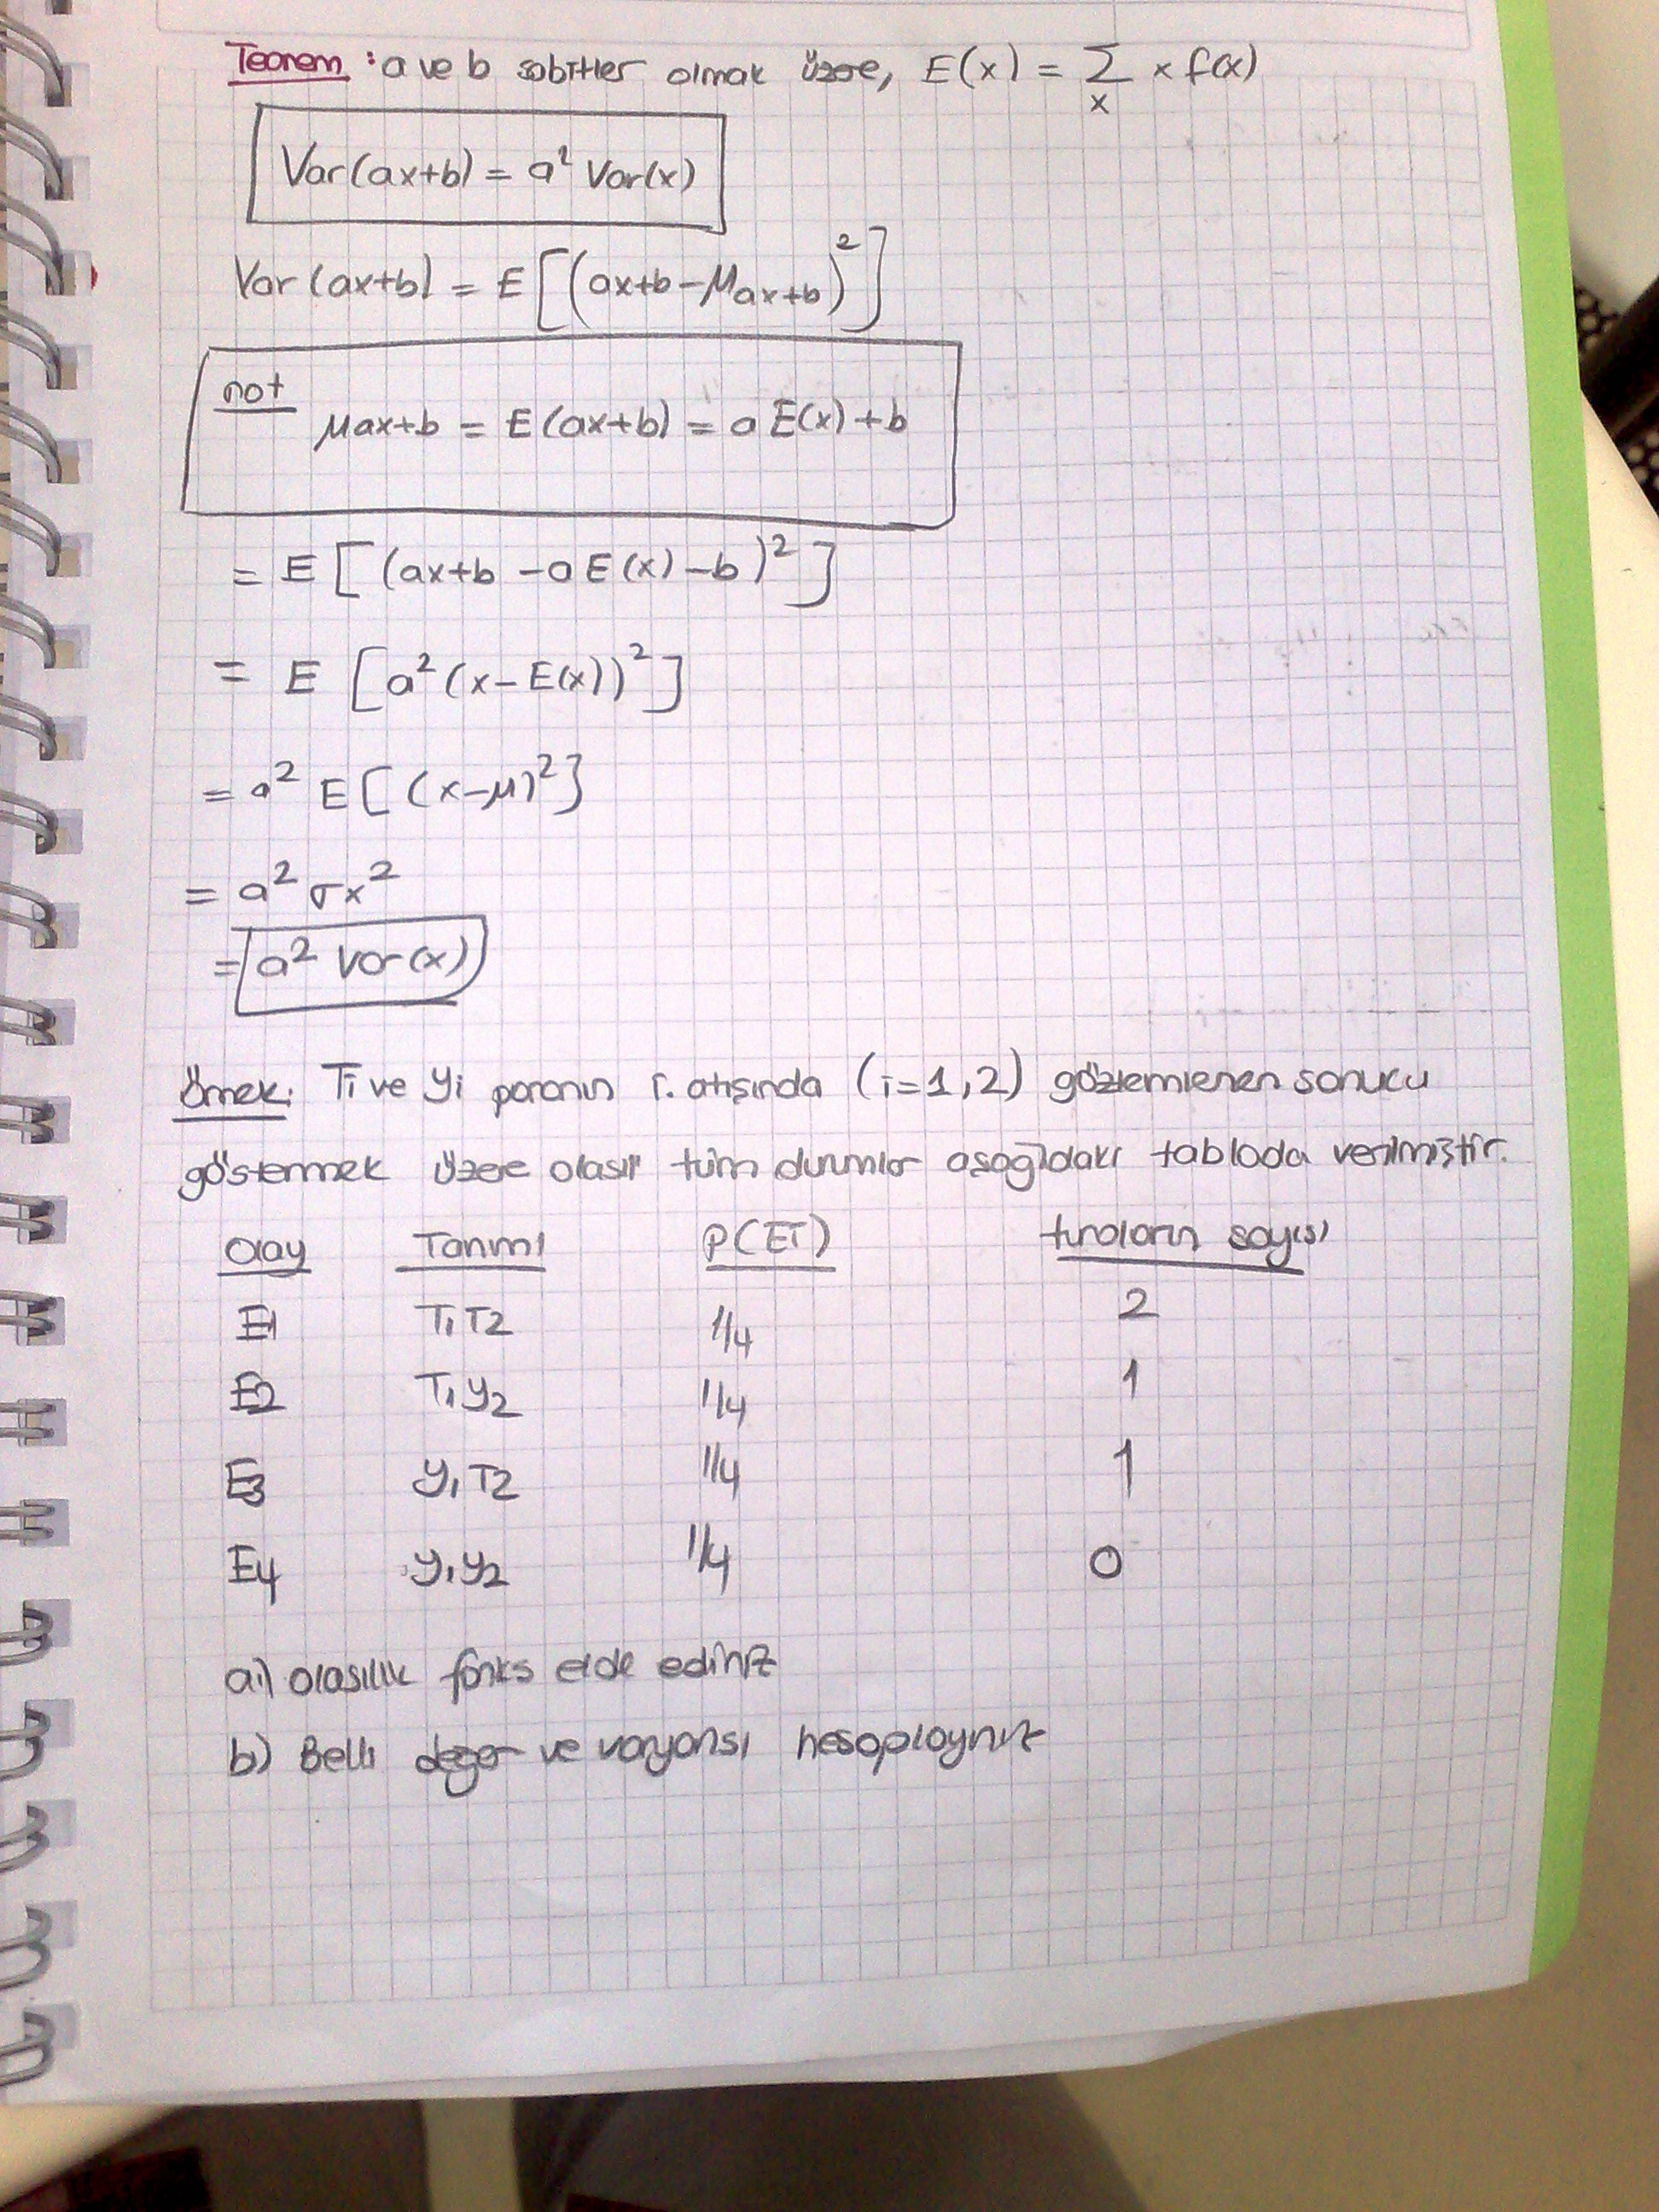 Teorem : a ve b sabitler olmak üzere, E(x) = Σ x f(x)
x
Var(ax+b) = a² Var(x)
Var(ax+b) = E[(ax+b-μax+b)²]
not
μax+b = E(ax+b) = a E(x)+b
= E[(ax+b -a E(x) -b)²]
= E [a²(x-E(x))²]
= a² E[(x-μ)²]
= a² σx²
= a² Var(x)
Örnek: Ti ve yi paranın i. atışında (i=1,2) gözlemlenen sonucu
göstermek üzere olasılı tüm durumlar aşağıdaki tabloda verilmiştir.
Olay Tanımı P(Ei) turaların sayısı
E1 T1T2 1/4 2
E2 T1y2 1/4 1
E3 y1T2 1/4 1
E4 y1y2 1/4 0
a) olasılık fonks elde ediniz
b) Belli değer ve varyansı hesaplayınız